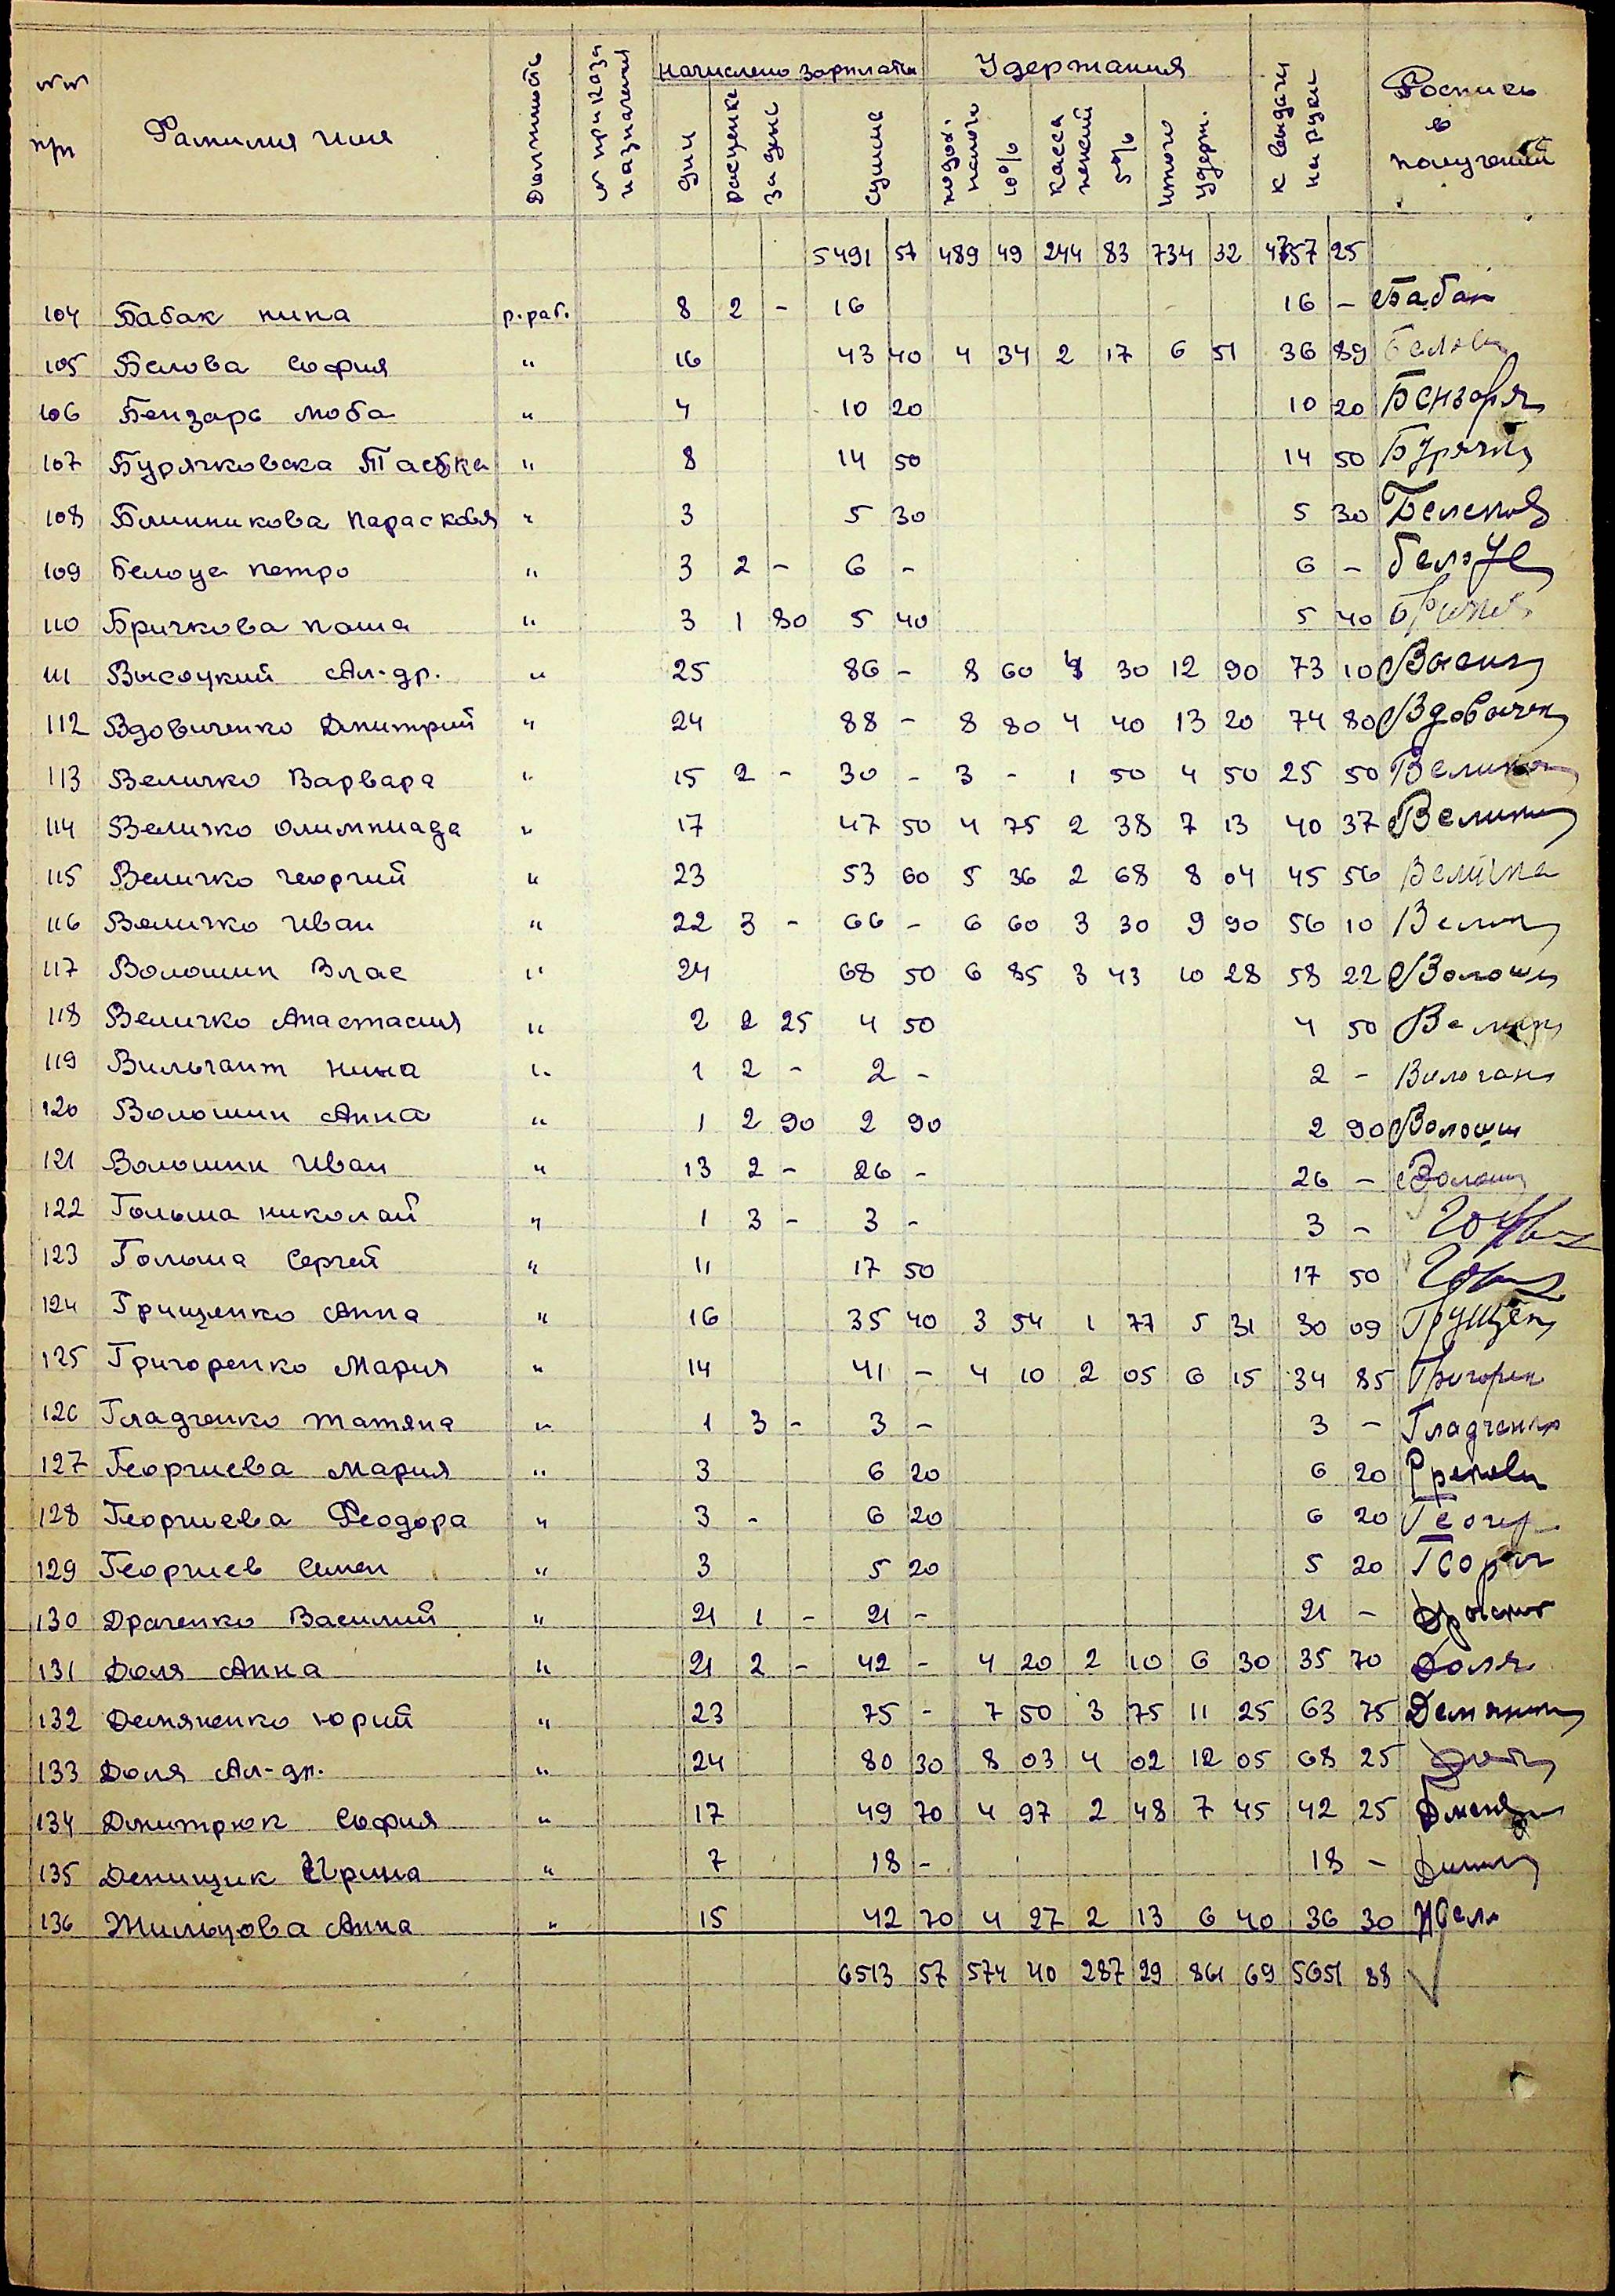 №№ п/п Фамилия имя Должность № приказа назначения Начислено зарплаты Удержания к выдачи на руки Роспись в получении
дни расценка за день сумма подох. налога 10% касса пенсий 5% итого удерж.
5491 57 489 49 244 83 734 32 4757 25
104 Бабак Нина р.раб. 8 2 - 16 16 - Бабак
105 Белова София " 16 43 40 4 34 2 17 6 51 36 89 Белова
106 Бензарь Люба " 4 10 20 10 20 Бензаря
107 Бурячковска " 8 14 50 14 50 Бурячк
108 Блинникова Парасковя " 3 5 30 5 30
109 Белоус Петро " 3 2 - 6 - 6 - белоус
110 Бричкова Паша " 3 1 80 5 40 5 40
111 Высоцкий Ал-др. " 25 86 - 8 60 4 30 12 90 73 10
112 Вдовиченко Дмитрий " 24 88 - 8 80 4 40 13 20 74 80 Вдовичен
113 Величко Варвара " 15 2 - 30 - 3 - 1 50 4 50 25 50
114 Величко Олимпиада " 17 47 50 4 75 2 38 7 13 40 37
115 Величко Георгий " 23 53 60 5 36 2 68 8 04 45 56
116 Величко Иван " 22 3 - 66 - 6 60 3 30 9 90 56 10
117 Волошин Влас " 24 68 50 6 85 3 43 10 28 58 22 Волоши
118 Величко Анастасия " 2 2 25 4 50 4 50
119 Вильгант Нина " 1 2 - 2 - 2 -
120 Волошин Анна " 1 2 90 2 90 2 90 Волоши
121 Волошин Иван " 13 2 - 26 - 26 - Волош
122 Гольма Николай " 1 3 - 3 - 3 -
123 Гольма Сергей " 11 17 50 17 50
124 Грищенко Анна " 16 35 40 3 54 1 77 5 31 30 09
125 Григоренко Мария " 14 41 - 4 10 2 05 6 15 34 85 Григорен
126 Гладченко Татяна " 1 3 - 3 - 3 - Гладченко
127 Георгиева Мария " 3 6 20 6 20
128 Георгиева Феодора " 3 - 6 20 6 20 Геогр
129 Георгиев Семен " 3 5 20 5 20 Георги
130 Драченко Василий " 21 1 - 21 - 21 -
131 Доля Анна " 21 2 - 42 - 4 20 2 10 6 30 35 70 Доля
132 Демяненко Юрий " 23 75 - 7 50 3 75 11 25 63 75 Демянен
133 Доля Ал-др. " 24 80 30 8 03 4 02 12 05 68 25
134 Дмитрюк София " 17 49 70 4 97 2 48 7 45 42 25
135 Денищик Ирина " 7 18 - 18 -
136 Жильцова Анна " 15 42 70 4 27 2 13 6 40 36 30
6513 57 574 40 287 29 861 69 5651 88